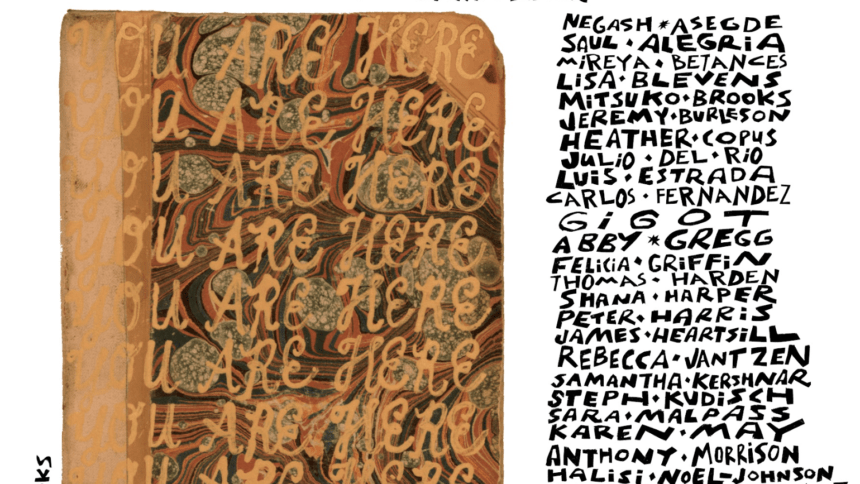 YOU ARE HERE
YOU ARE HERE
YOU ARE HERE
YOU ARE HERE
YOU ARE HERE
YOU ARE HERE
YOU ARE HERE
YOU ARE HERE
KS
NEGASH * ASEGDE
SAUL • ALEGRiA
MiREYA • BETANCES
LiSA • BLEVENS
MiTSUKO • BROOKS
JEREMY • BURLESON
HEATHER • COPUS
JULiO • DEL • RiO
LUiS • ESTRADA
CARLOS • FERNANDEZ
GiGOT
ABBY * GREGG
FELiCiA • GRiFFiN
THOMAS • HARDEN
SHANA • HARPER
PETER • HARRiS
JAMES • HEARTSiLL
REBECCA • JANTZEN
SAMANTHA • KERSHNAR
STEPH • KUDiSCH
SARA • MALPASS
KAREN • MAY
ANTHONY • MORRiSON
HALiSi • NOEL-JOHNSON